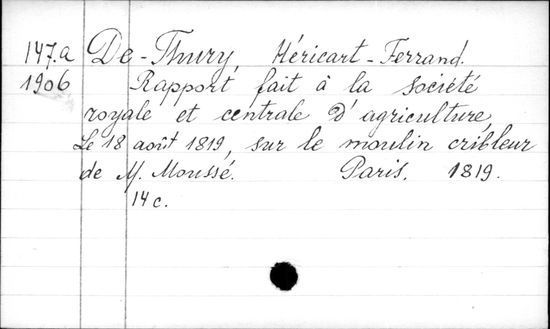 147.a De-Thury, Héricart-Ferrand.
1906 Rapport fait à la société
royale et centrale d'agriculture,
Le 18 août 1819, sur le moulin cribleur
de M. Moussé. Paris. 1819.
14 c.